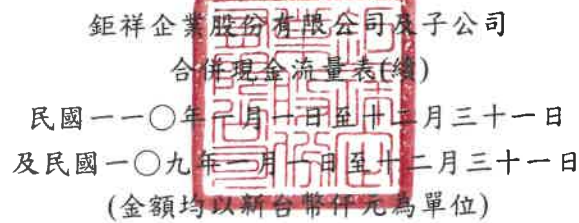 鉅祥企業股份有限公司及子公司
合併現金流量表(續)
民國一一〇年一月一日至十二月三十一日
及民國一〇九年一月一日至十二月三十一日
(金額均以新台幣仟元為單位)